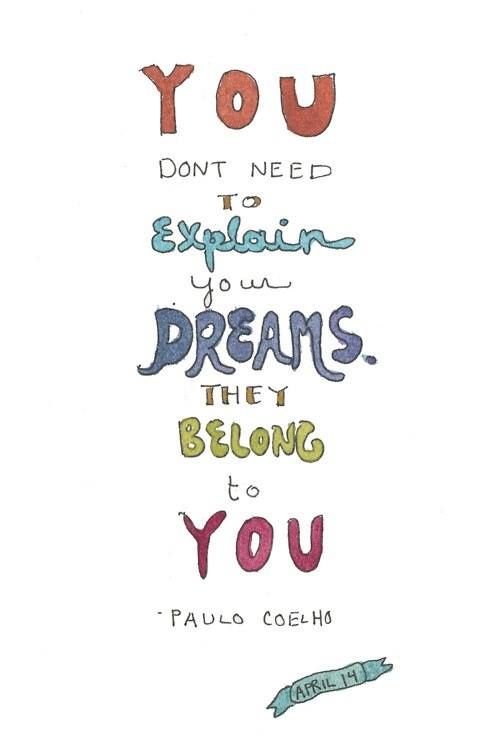 YOU
DONT NEED
TO
Explain
your
DREAMS.
THEY
BELONG
to
YOU
-PAULO COELHO
APRIL 14